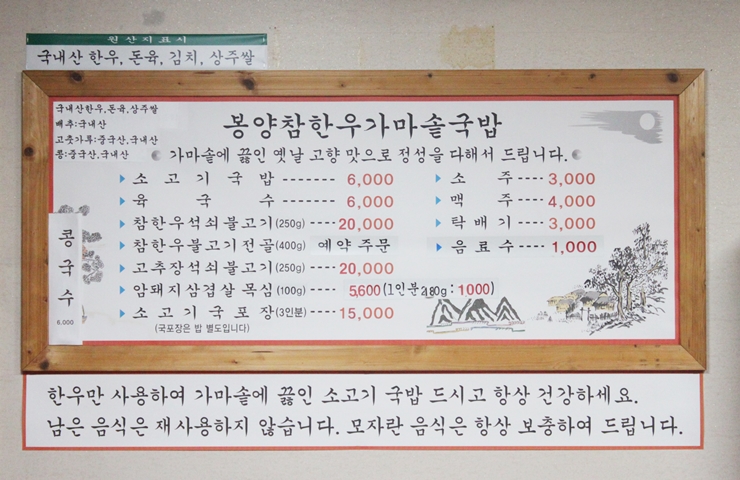 원산지표시
국내산 한우, 돈육, 김치, 상주쌀
국내산한우,돈육,상주쌀
배추:국내산
고춧가루:중국산,국내산
콩:중국산,국내산
봉양참한우가마솥국밥
가마솥에 끓인 옛날 고향 맛으로 정성을 다해서 드립니다.
소고기국밥 ------- 6,000
육국수 -------- 6,000
참한우석쇠불고기(250g) ---- 20,000
참한우불고기전골(400g) 예약 주문
고추장석쇠불고기(250g) ---- 20,000
암퇘지삼겹살 목심(100g) ---- 5,600 (1인분180g : 1000)
소고기국포장(3인분) ---- 15,000
(국포장은 밥 별도입니다)
소주 ---- 3,000
맥주 ---- 4,000
탁배기 ---- 3,000
음료수 ---- 1,000
콩국수
6,000
한우만 사용하여 가마솥에 끓인 소고기 국밥 드시고 항상 건강하세요.
남은 음식은 재사용하지 않습니다. 모자란 음식은 항상 보충하여 드립니다.